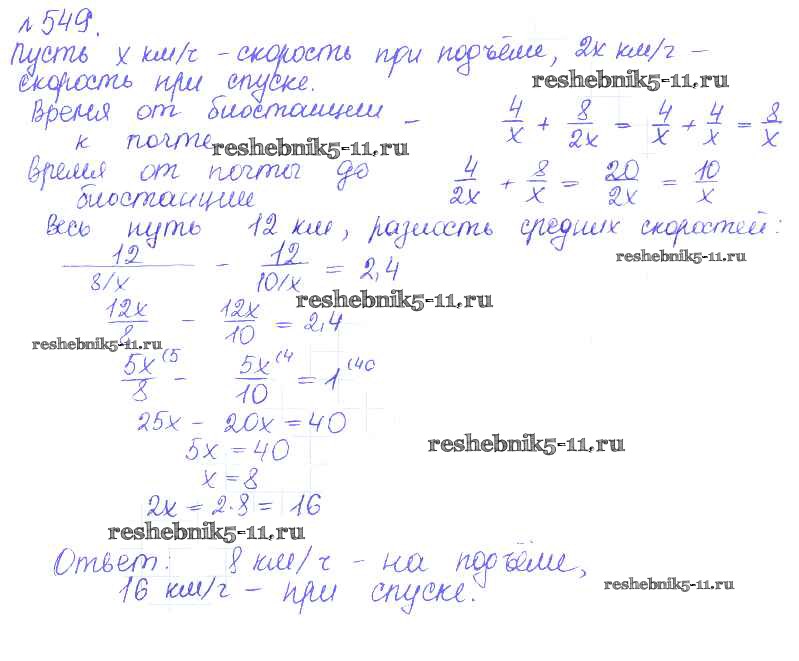 №549.
Пусть x км/ч - скорость при подъёме, 2x км/ч -
скорость при спуске.
reshebnik5-11.ru
Время от биостанции к почте - 4/x + 8/2x = 4/x + 4/x = 8/x
reshebnik5-11.ru
Время от почты до биостанции 4/2x + 8/x = 20/2x = 10/x
Весь путь 12 км, разность средних скоростей:
reshebnik5-11.ru
12/(8/x) - 12/(10/x) = 2,4
reshebnik5-11.ru
12x/8 - 12x/10 = 2,4
reshebnik5-11.ru
5x/8 (5 - 5x/10 (4 = 1 (40
25x - 20x = 40
reshebnik5-11.ru
5x = 40
x = 8
2x = 2·8 = 16
reshebnik5-11.ru
Ответ: 8 км/ч - на подъёме,
16 км/ч - при спуске.
reshebnik5-11.ru